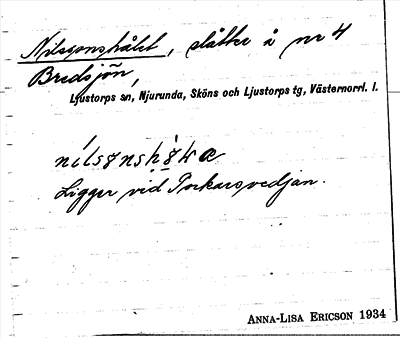 Nilsonshålet, slåtter å nr 4
Bredsjön,
Ljustorps sn, Njurunda, Sköns och Ljustorps tg, Västernorrl. l.
Ligger vid Porkarsvedjan.
ANNA-LISA ERICSON 1934